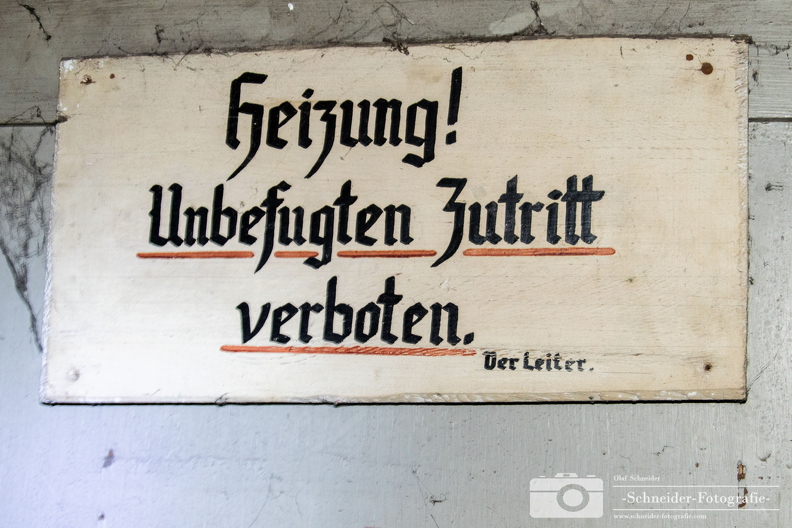 Heizung!
Unbefugten Zutritt
verboten.
Der Leiter.
Olaf Schneider
-Schneider-Fotografie-
www.schneider-fotografie.com